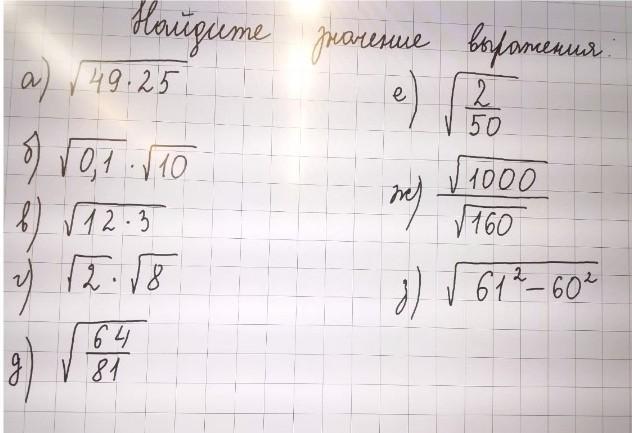 Найдите значение выражения:
а) √(49·25)
б) √0,1 · √10
в) √(12·3)
г) √2 · √8
д) √(64/81)
е) √(2/50)
ж) √1000/√160
з) √(61²-60²)